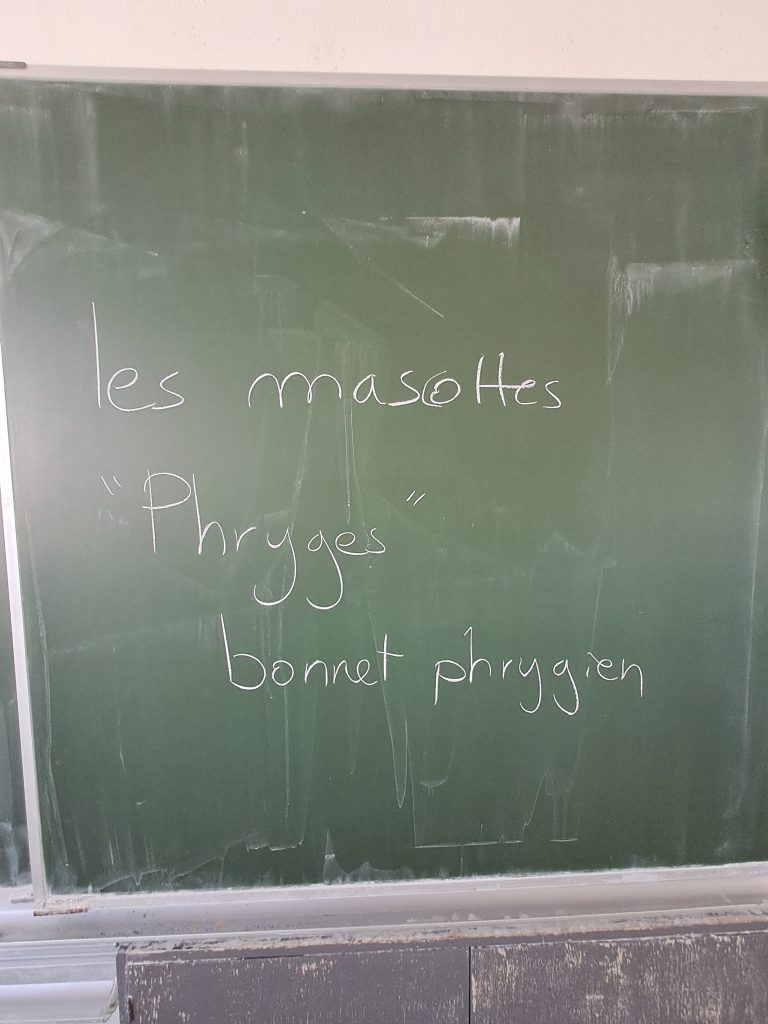 les mascottes
"Phryges"
bonnet phrygien